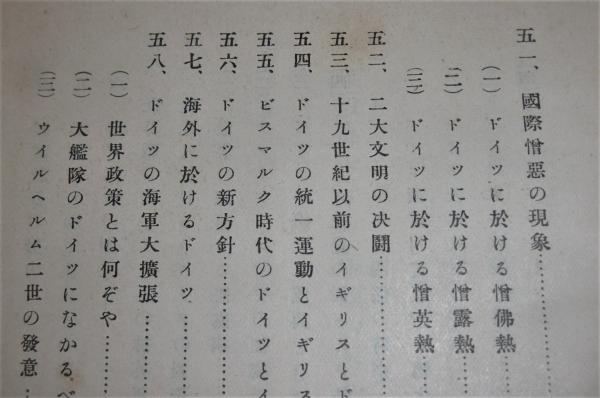 五一、國際憎惡の現象…………
（一）ドイツに於ける憎佛熱………
（二）ドイツに於ける憎露熱………
（三）ドイツに於ける憎英熱………
五二、二大文明の決鬪…………
五三、十九世紀以前のイギリスとド
五四、ドイツの統一運動とイギリス
五五、ビスマルク時代のドイツとイ
五六、ドイツの新方針…………
五七、海外に於けるドイツ…………
五八、ドイツの海軍大擴張…………
（一）世界政策とは何ぞや…………
（二）大艦隊のドイツになかるべ
（三）ウイルヘルム二世の發意…